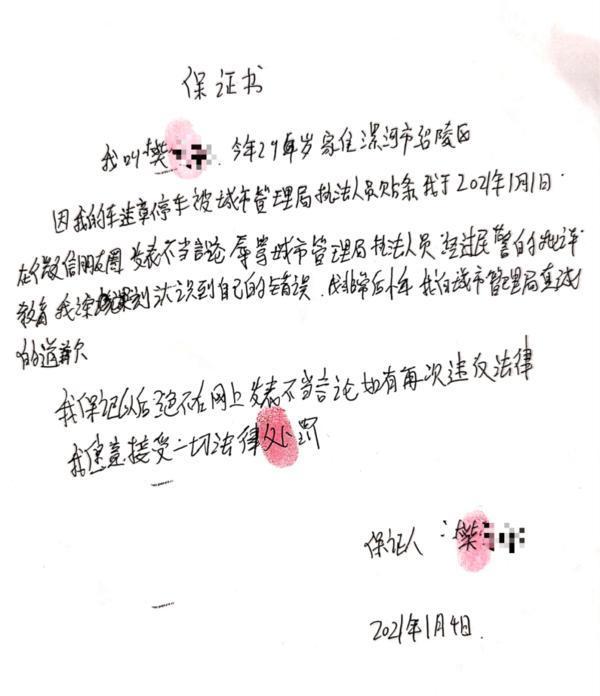 保证书
我叫樊 今年29岁 家住漯河市召陵区
因我的车违章停车被城市管理局执法人员贴条 我于2021年1月1日
在微信朋友圈发表不当言论 辱骂城市管理局执法人员 经过民警的批评
教育 我深刻认识到自己的错误 我非常后悔 我向城市管理局真诚
的道歉
我保证以后绝不在网上发表不当言论如有再次违反法律
我愿意接受一切法律处罚
保证人 樊
2021年1月4日